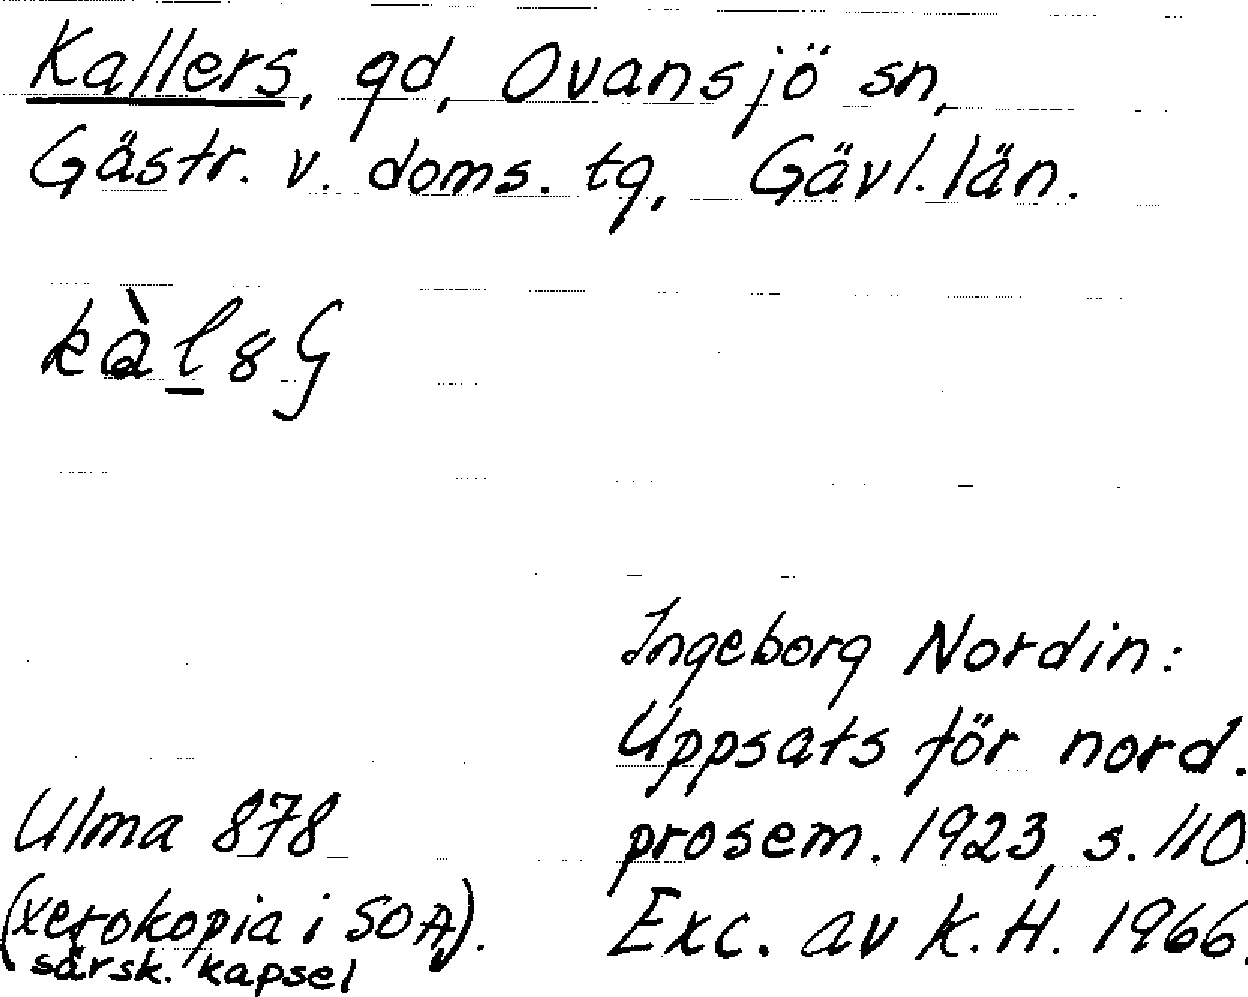 Kallers, gd, Ovansjö sn,
Gästr. v. doms. tg, Gävl. län.
Ingeborg Nordin:
Uppsats för nord.
prosem. 1923, s. 110.
Exc. av K. H. 1966.
Ulma 878
(xerokopia i SOA).
särsk. kapsel